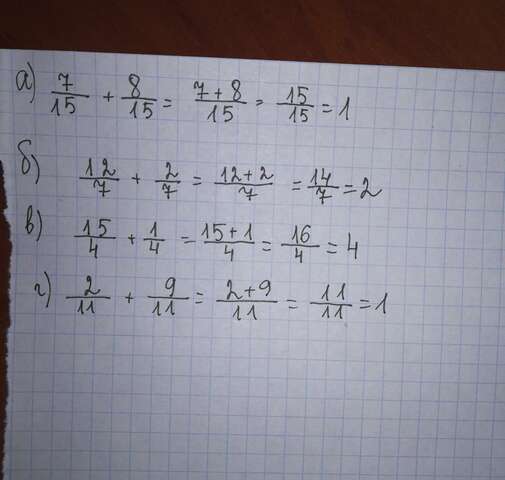 а) 7/15 + 8/15 = 7+8/15 = 15/15 = 1
б) 12/7 + 2/7 = 12+2/7 = 14/7 = 2
в) 15/4 + 1/4 = 15+1/4 = 16/4 = 4
г) 2/11 + 9/11 = 2+9/11 = 11/11 = 1